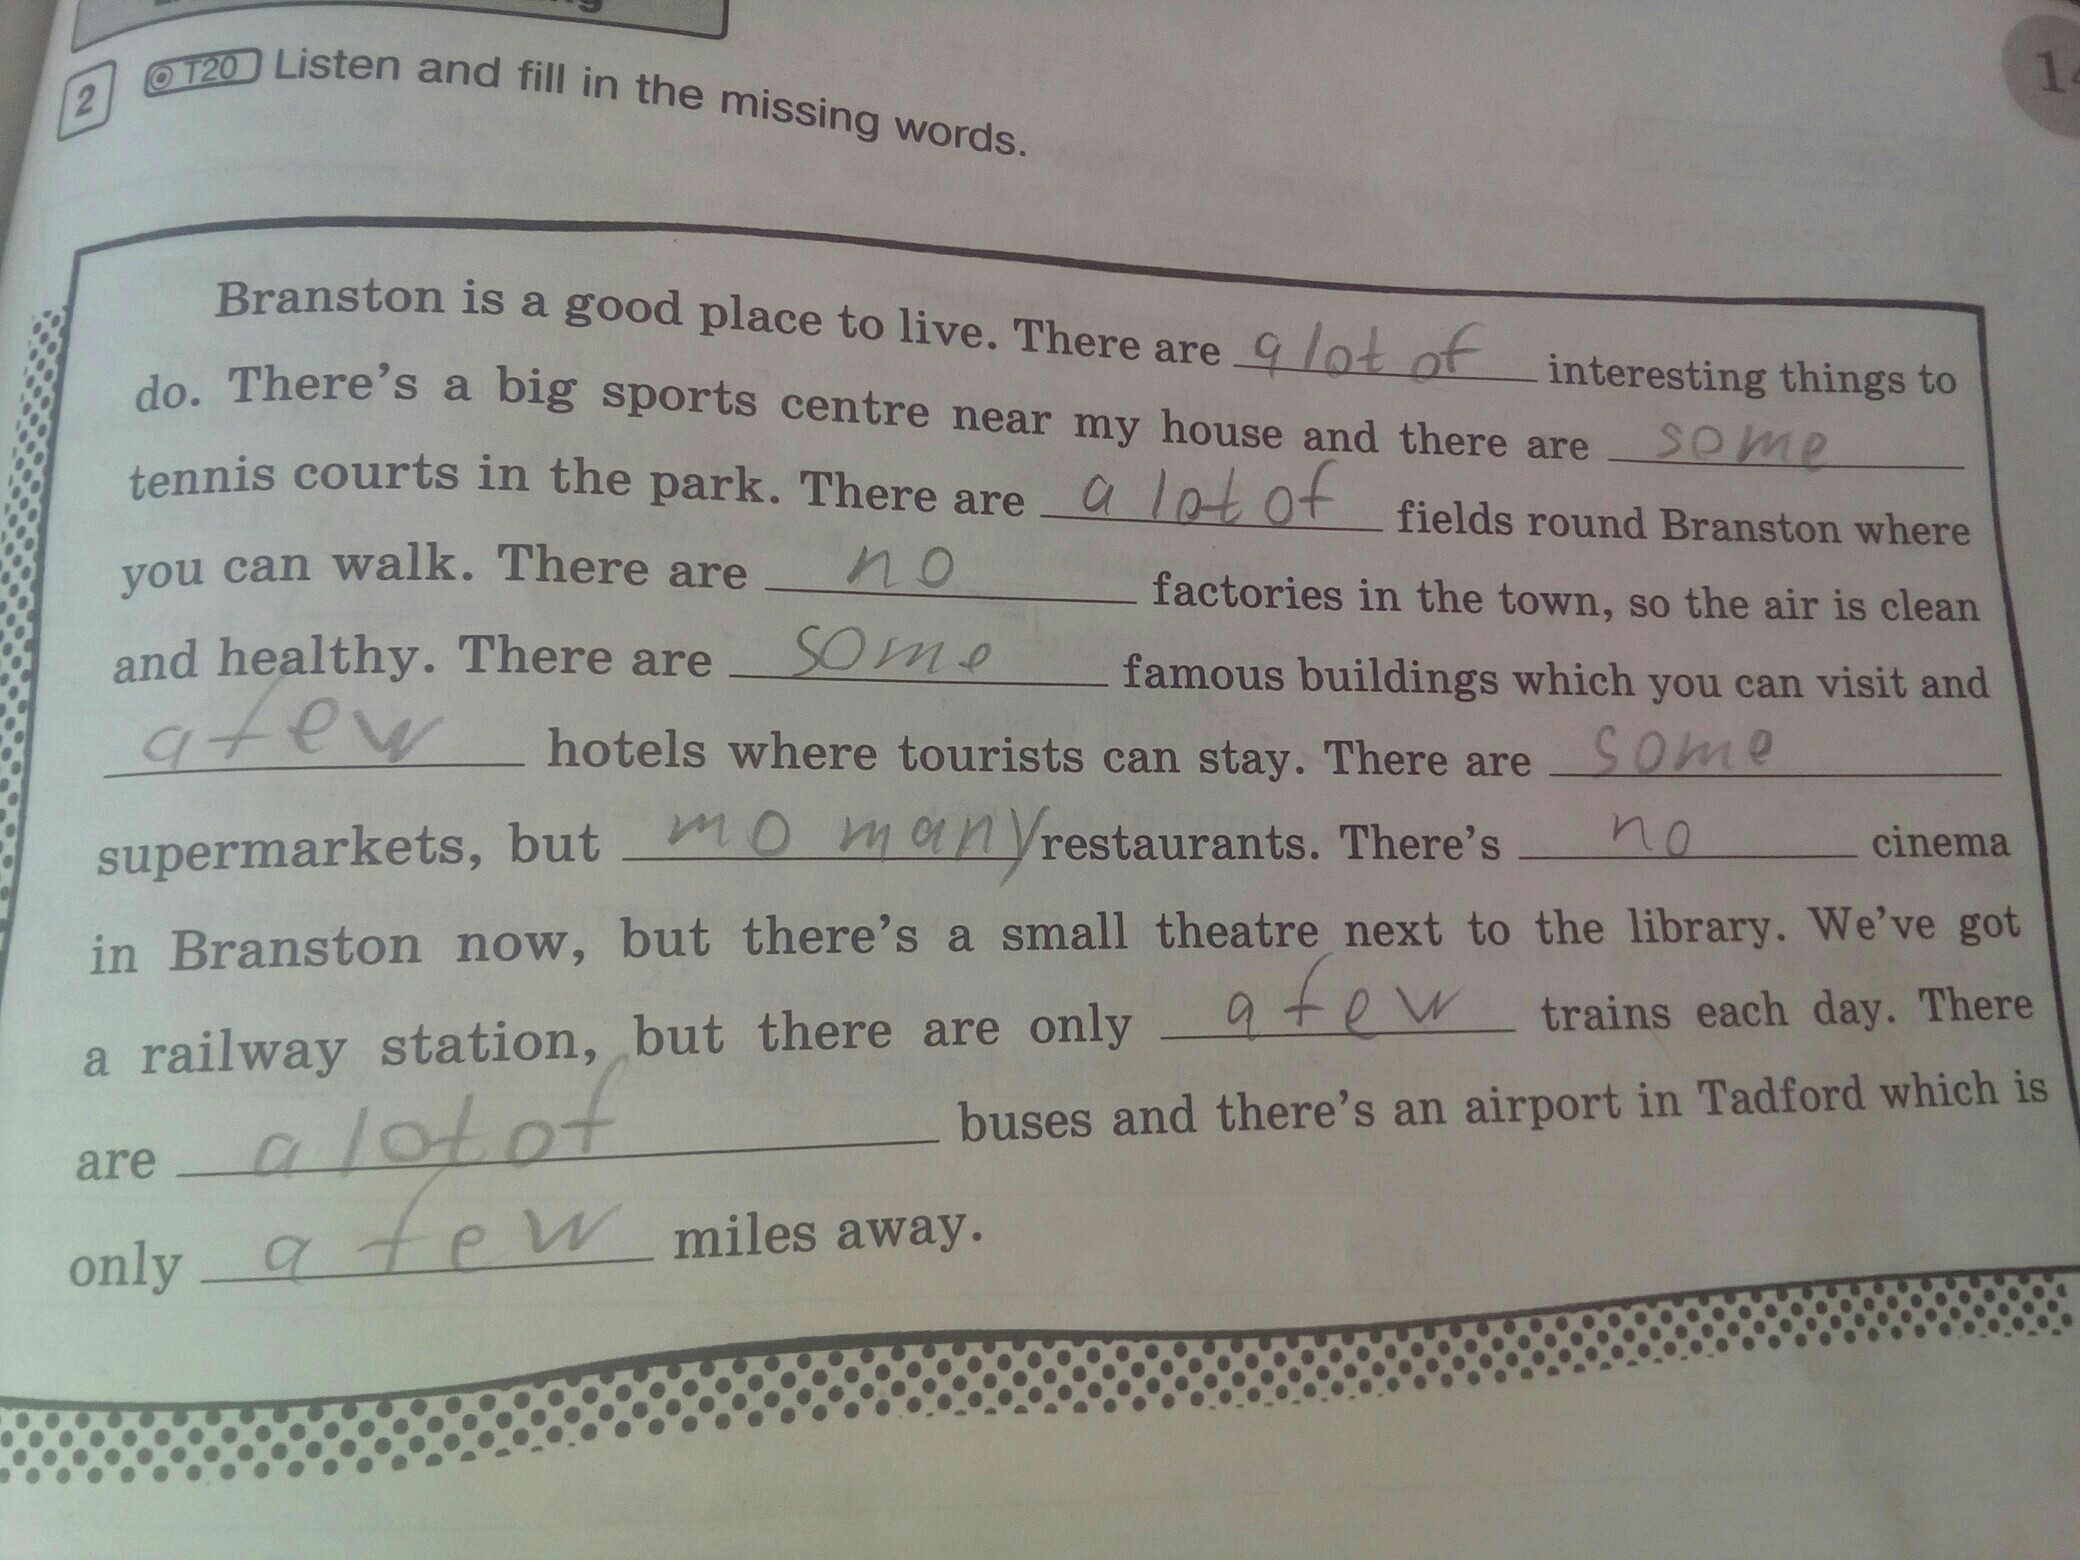 2 T20 Listen and fill in the missing words.
Branston is a good place to live. There are a lot of interesting things to
do. There's a big sports centre near my house and there are some
tennis courts in the park. There are a lot of fields round Branston where
you can walk. There are no factories in the town, so the air is clean
and healthy. There are some famous buildings which you can visit and
a few hotels where tourists can stay. There are some
supermarkets, but mo many restaurants. There's no cinema
in Branston now, but there's a small theatre next to the library. We've got
a railway station, but there are only a few trains each day. There
are a lot of buses and there's an airport in Tadford which is
only a few miles away.